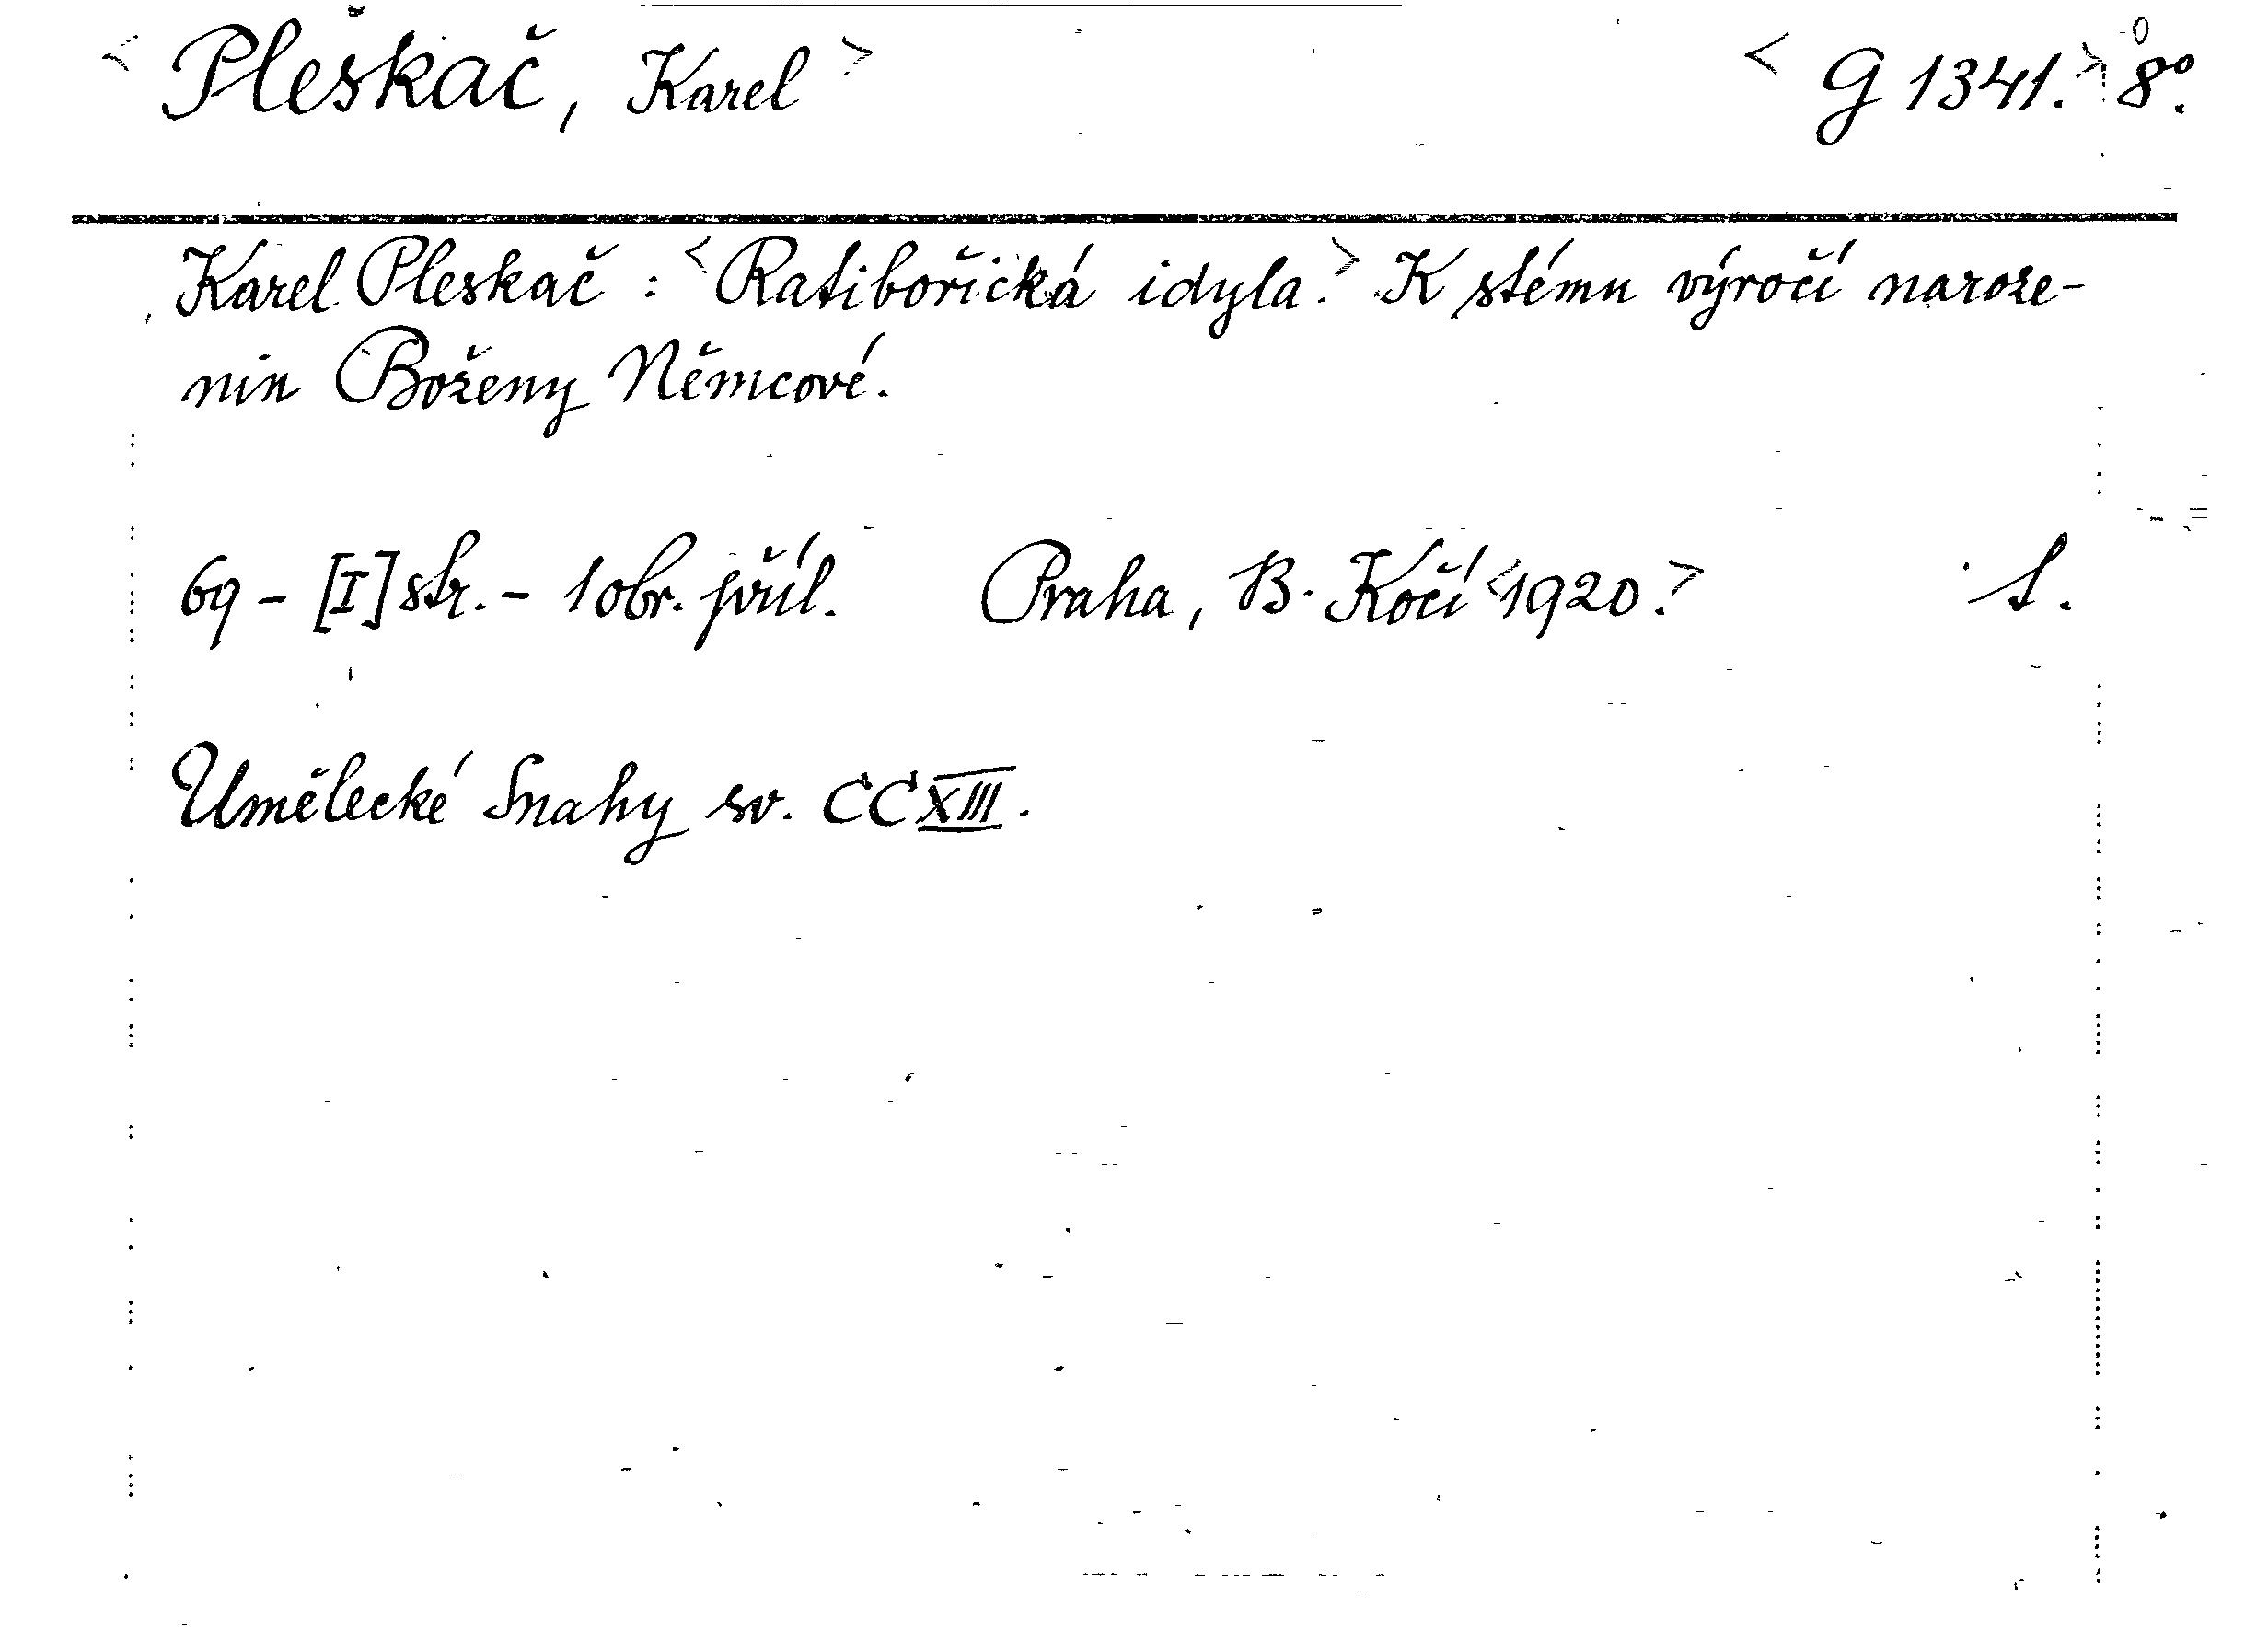 < Pleskač, Karel > < G 1341. > 8º.
Karel Pleskač : < Ratibořická idyla. > K stému výročí naroze-
nin Boženy Němcové.
69 - [I] str. - 1 obr. příl. Praha, B. Kočí < 1920. > S.
Umělecké Snahy sv. CCXIII.